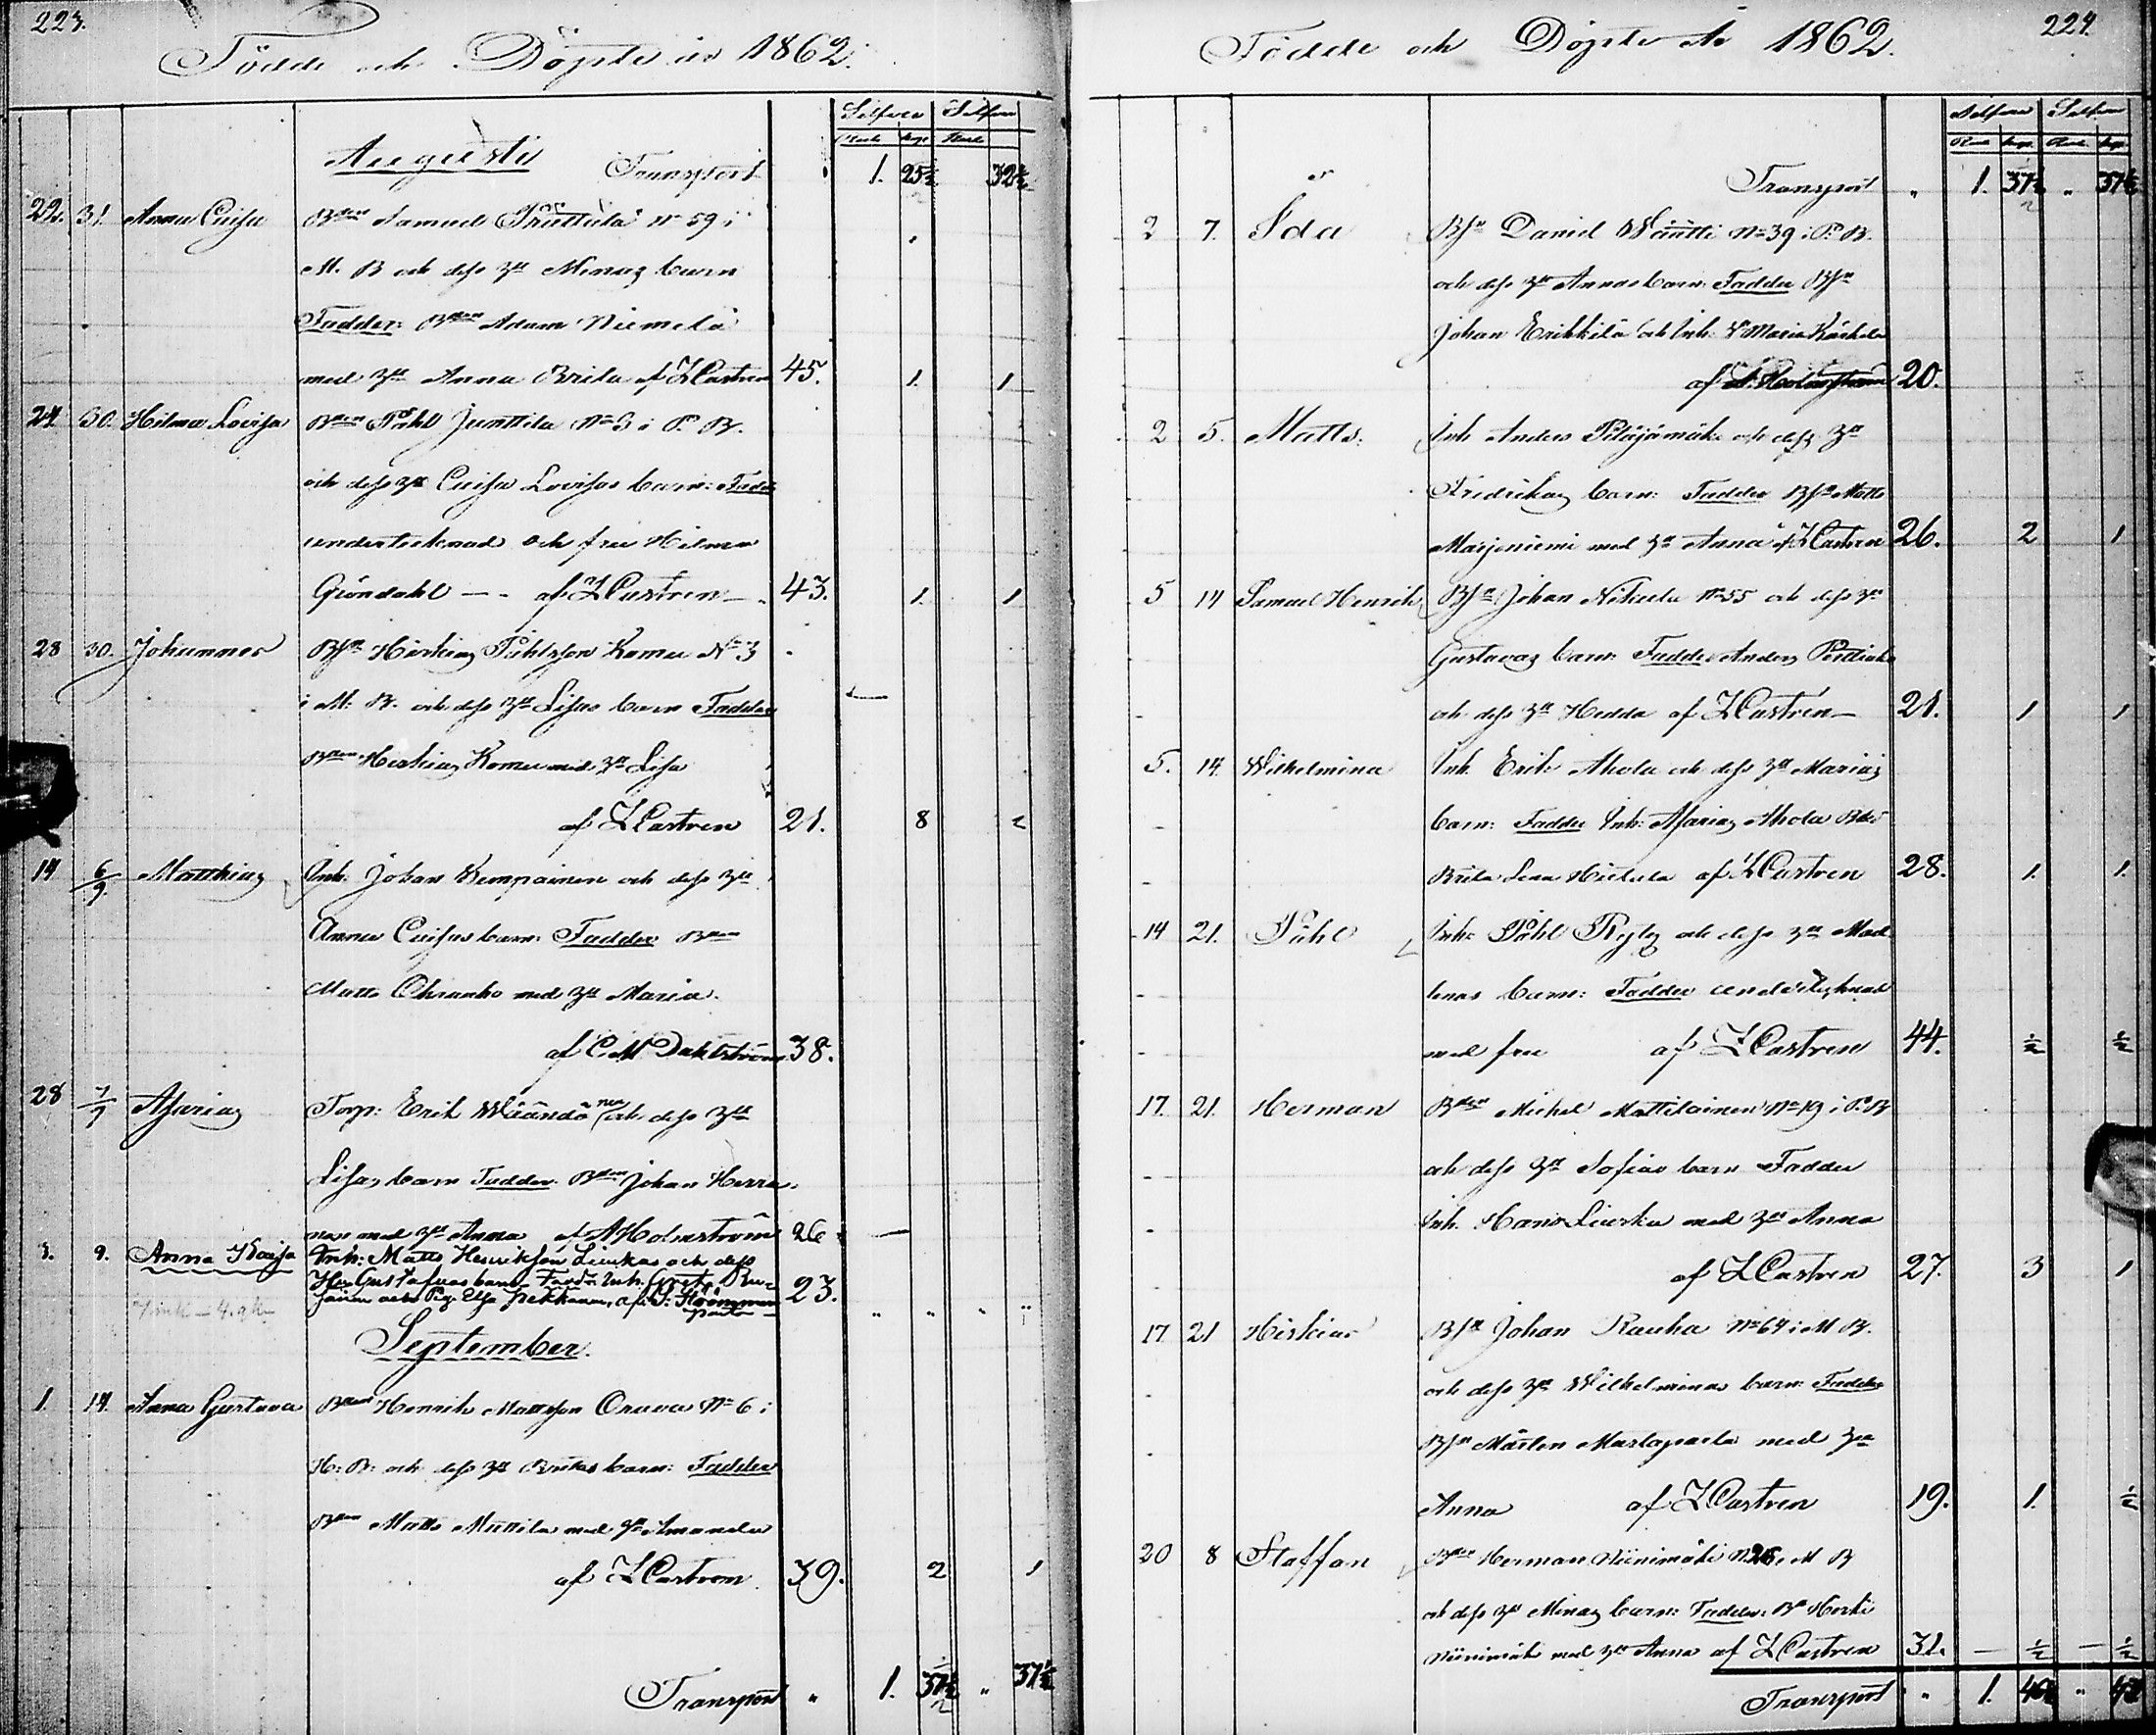 223.
Födde och Döpte år 1862.
Silfver Silfver
Augusti
Transport 1. 25½ 32½
22. 31. Anna Caisa Bden Samuel No 59 i
M. B och dess h Minas barn
Fadder: Bden Adam Niemelä
med h Anna Brita af Z Castren 45. 1. 1
24 30. Hilma Lovisa Bden Påhl Junttila No 3 i P. B.
och dess h Caisa Lovisas barn: Fadd
undertecknad och fru Hilma
Gröndahl — - af Z Castren — 43. 1. 1
28 30. Johannes Bsn Hiskias Påhlsson Komu No 3
i M. B. och dess h Lisas barn Fadder
Bden Hiskias Komu med h Lisa
af Z Castren 21. 8 2
14 6/9. Matthias Inh. Johan Kemppainen och dess h
Anna Caisas barn: Fadder Bden
Matts med h Maria.
af C. M Dahlström 38.
28 7/9 Asarias Torp: Erik Väänänen och dess h
Lisas barn Fadder. Bden Johan Herra-
nen med h Anna af A Holmström 26 —
3. 9. Anna Kaisa Inh: Matts Henriksson Liukas och dess
Hu Gustafvas barn. Fadd: Inh. Gust.
och Pig. Elsa Pekkanen, af 23.
September.
1. 14. Anna Gustava Bden Henrik Mattsson Orava No 6 i
H: B: och dess h Britas barn: Fadder
Bden Matts Mattila med h Amanda
af Z Castren 39. 2 1
Transport " 1. 37½ " 37½
224.
Födde och Döpte År 1862.
Silfver Silfver
Transport " 1. 37½ " 37½
2 7. Ida Bsn Daniel Wäntti No 39 i P. B.
och dess h Annas barn: Fadder Bsn
Johan Erikkilä och Inh: Maria
af A. Holmström 20.
2 5. Matts. Inh Anders Petäjämäki och dess h
Fredrikas barn: Fadder Bsn Matts
Marjeniemi med h Anna af Z Castren 26. 2 1
5 14 Samuel Henrik Bsn Johan Nikula No 55 och dess h
Gustavas barn: Fadder Anders
och dess h Hedda af Z Castren — 21. 1 1
5. 14. Wilhelmina Inh. Erik Ahola och dess h Marias
barn: Fadder Inh: Asarias Ahola
Brita Lena Hietala af Z Castren 28. 1. 1.
14 21. Påhl Inh: Påhl och dess h Mad
lenas barn: Fadder undertecknad
med fru af Z Castren 44. ½ ½
17. 21. Herman Bden Michel Mattilainen No 19 i P. B
och dess h Sofias barn Fadder
Inh. Hans med h Anna
af Z Castren 27. 3 1
17. 21 Hiskias Bsn Johan Rauha No 64 i M B.
och dess h Wilhelminas barn: Fadder
Bsn Mårten Mustapaeta med h
Anna af Z Castren 19. 1. ½
20 8 Staffan Bden Herman Niinimäki N 26 i M B
och dess h Minas barn: Fadder: Bd Herki
Niinimäki med h Anna af Z Castren 31. — ½ — ½
Transport " 1. "